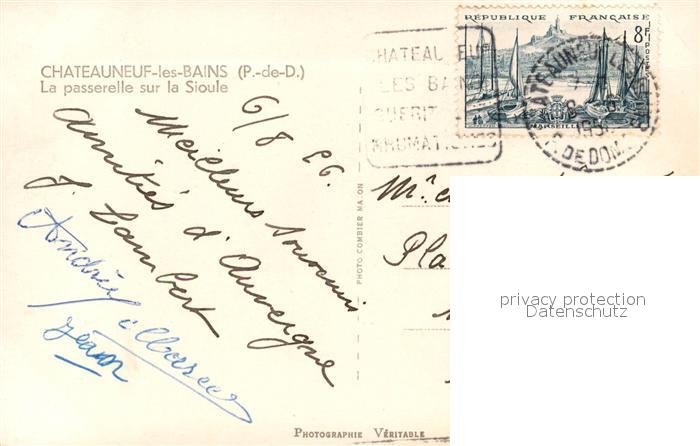 CHATEAUNEUF-les-BAINS (P.-de-D.)
La passerelle sur la Sioule
6/8 56.
Meilleurs souvenirs
amitiés d'Auvergne
J. Lambert
Andrée
Jean
PHOTO COMBIER MACON
PHOTOGRAPHIE VÉRITABLE
CHATEAUNEUF
LES BAINS
GUERIT
RHUMATISMES
RÉPUBLIQUE FRANÇAISE
8F
POSTES
MARSEILLE
CHATEAUNEUF LES BAINS
P. DE DOME
Mr
Pla
privacy protection
Datenschutz